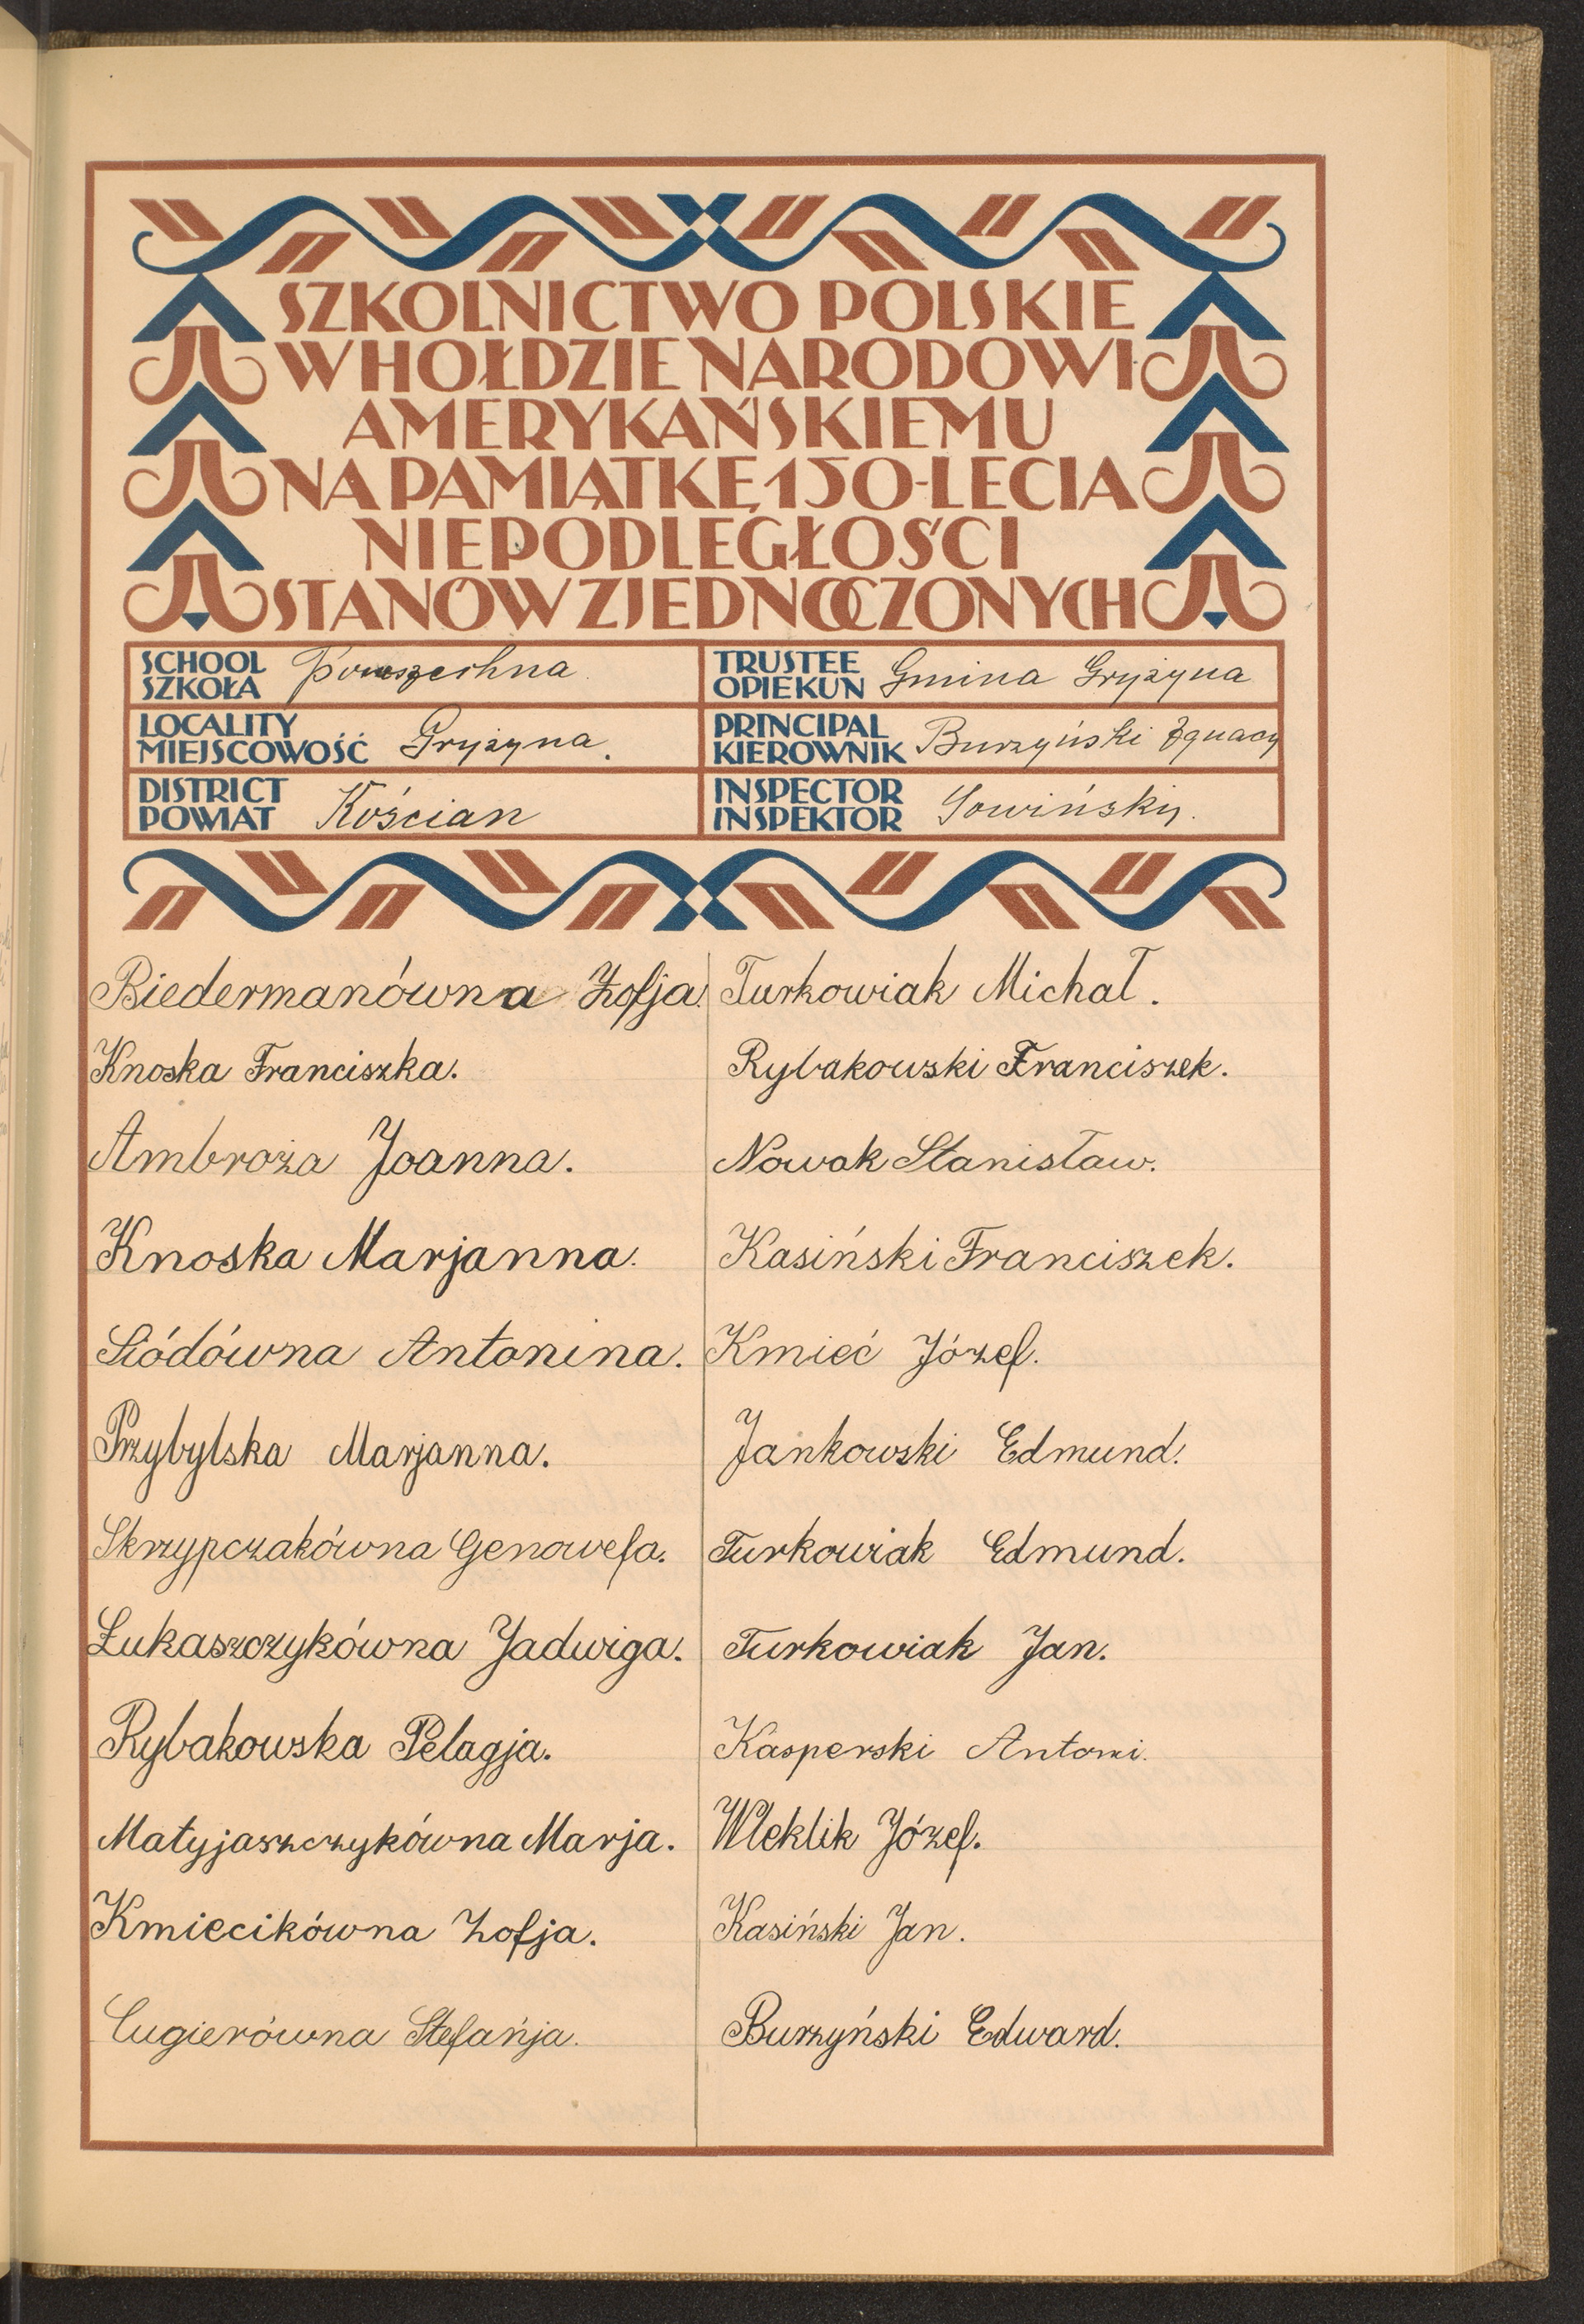 SZKOLNICTWO POLSKIE
W HOŁDZIE NARODOWI
AMERYKAŃSKIEMU
NA PAMIĄTKĘ 150-LECIA
NIEPODLEGŁOŚCI
STANÓW ZJEDNOCZONYCH
SCHOOL
SZKOŁA Powszechna
TRUSTEE
OPIEKUN Gmina Gryżyna
LOCALITY
MIEJSCOWOŚĆ Gryżyna.
PRINCIPAL
KIEROWNIK Burzyński Ignacy
DISTRICT
POWIAT Kościan
INSPECTOR
INSPEKTOR Sowiński.
Biedermanówna Zofja.
Knoska Franciszka.
Ambroża Joanna.
Knoska Marjanna.
Siódówna Antonina.
Przybylska Marjanna.
Skrzypczakówna Genowefa.
Łukaszczykówna Jadwiga.
Rybakowska Pelagja.
Matyjaszczykówna Marja.
Kmiecikówna Zofja.
Cugierówna Stefańja.
Turkowiak Michał.
Rybakowski Franciszek.
Nowak Stanisław.
Kasiński Franciszek.
Kmieć Józef.
Jankowski Edmund.
Turkowiak Edmund.
Turkowiak Jan.
Kasperski Antoni.
Wleklik Józef.
Kasiński Jan.
Burzyński Edward.